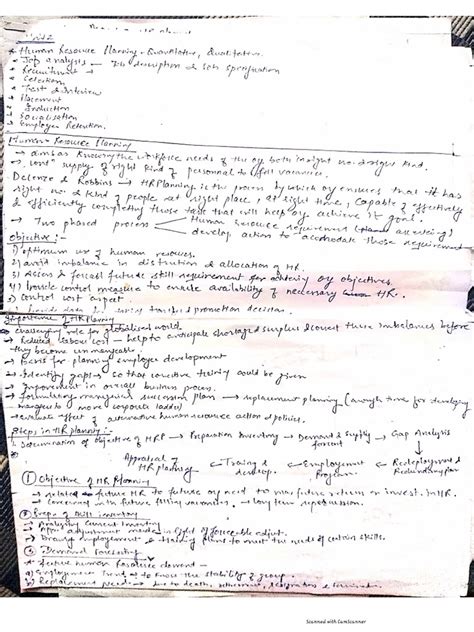 Unit 2
* Human Resource Planning - Quantitative, Qualitative.
* Job analysis - Job description & Job Specification
* Recruitment
* Selection
* Test & Interview
* Placement
* Induction
* Socialisation
* Employee Retention.
Human Resource Planning
→ aims at knowing the workforce needs of the org both in right no. & right kind.
→ cont^s supply of right kind of personnal to fill vacancies.
Decenzo & Robbins → HR Planning is the process by which org ensures that it has
right no. & kind of people at right place, at right time, capable of effectively
& efficiently completing those task that will help org achieve its goal.
→ Two phased process Human resource requirement
develop action to accomodate those requirement
Objective :-
1) optimum use of human resources.
2) avoid imbalance in distribution & allocation of HR.
3) Assess & forcast future skill requirement for achieving org objectives.
4) Provide control measure to ensure availability of necessary HR.
5) control cost aspect
Importance of HR Planning
→ challenging role for globalised world.
→ Reduced labour cost - help to anticipate shortage & surplus & correct these imbalances before
they become unmanageable.
→ Basis for planning employee development
→ Identify gaps → so that corrective training could be given
→ Improvement in overall business process.
→ formulating managerial succession plan → replacement planning (enough time for developing
managers to move corporate ladder)
→ evaluate effect of alternative human resource action and policies.
Steps in HR planning :-
Determination of objective of HRP → Preparation Inventory → Demand & Supply forecast → Gap Analysis
Appraisal of HR planning ← Training & develop. ← Employment Program ← Redeployment & Redundancy plan
① Objective of HR Planning
→ relate future HR to future org need to max future return on invest. in HR.
→ Concerned in future filling vacancies → long term
② Preps of skill inventory
→ Analysing current inventory
→ adjustment made in light of
→ employment & training plans to meet the needs of certain skills.
③ Demand Forecasting
* future human resource demand -
a) Employment Trend → to know the stability of group
b) Replacement need → due to death, retirement, resignation & termination
Scanned with CamScanner